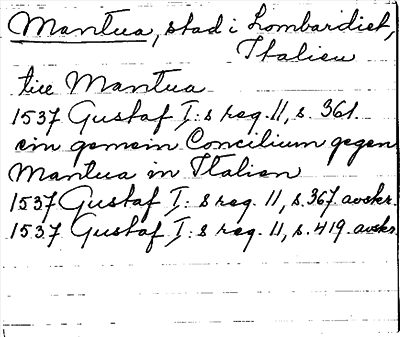 Mantua, stad i Lombardiet,
Italien
till Mantua
1537 Gustaf I:s reg. 11, s. 361.
ein gemein Concilium gegen
Mantua in Italien
1537 Gustaf I:s reg. 11, s. 367 avskr.
1537 Gustaf I:s reg. 11, s. 419. avskr.